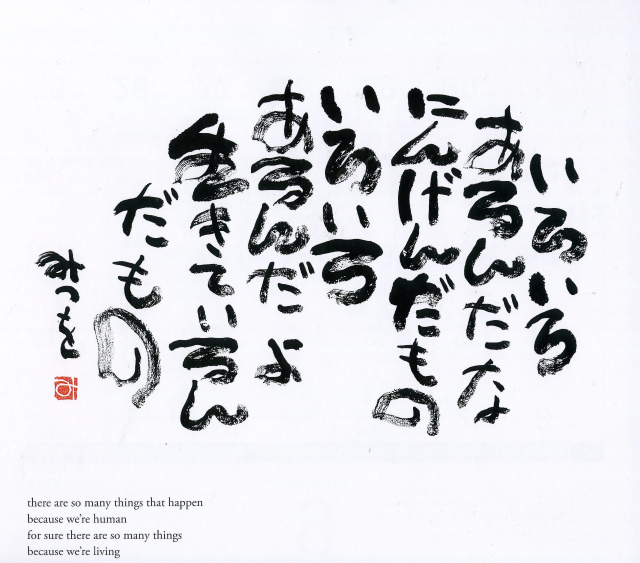 いろいろ
あるんだな
にんげんだもの
いろいろ
あるんだよ
生きているん
だもの
みつを
there are so many things that happen
because we're human
for sure there are so many things
because we're living